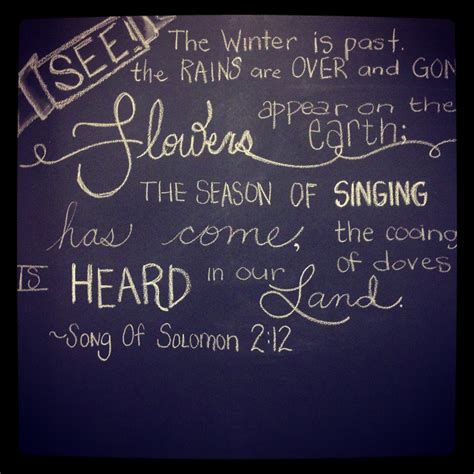 SEE! The Winter is past.
the RAINS are OVER and GON
Flowers appear on the
earth;
THE SEASON OF SINGING
has come, the cooing
of doves
IS HEARD in our Land.
~Song Of Solomon 2:12